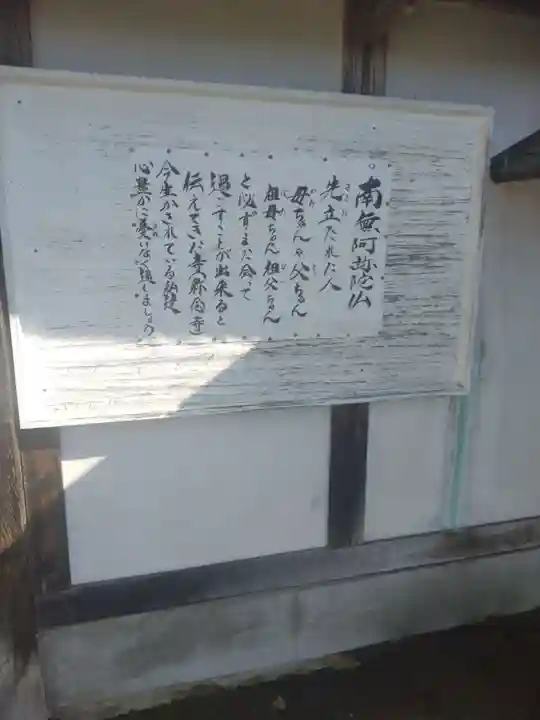 南無阿弥陀仏
先立たれた人
母ちゃんや父ちゃん
祖母ちゃん祖父ちゃん
と必ずまた会って
過すことが出来ると
伝えてきた
今生かされている
心豊かに憂いなく過しましょう